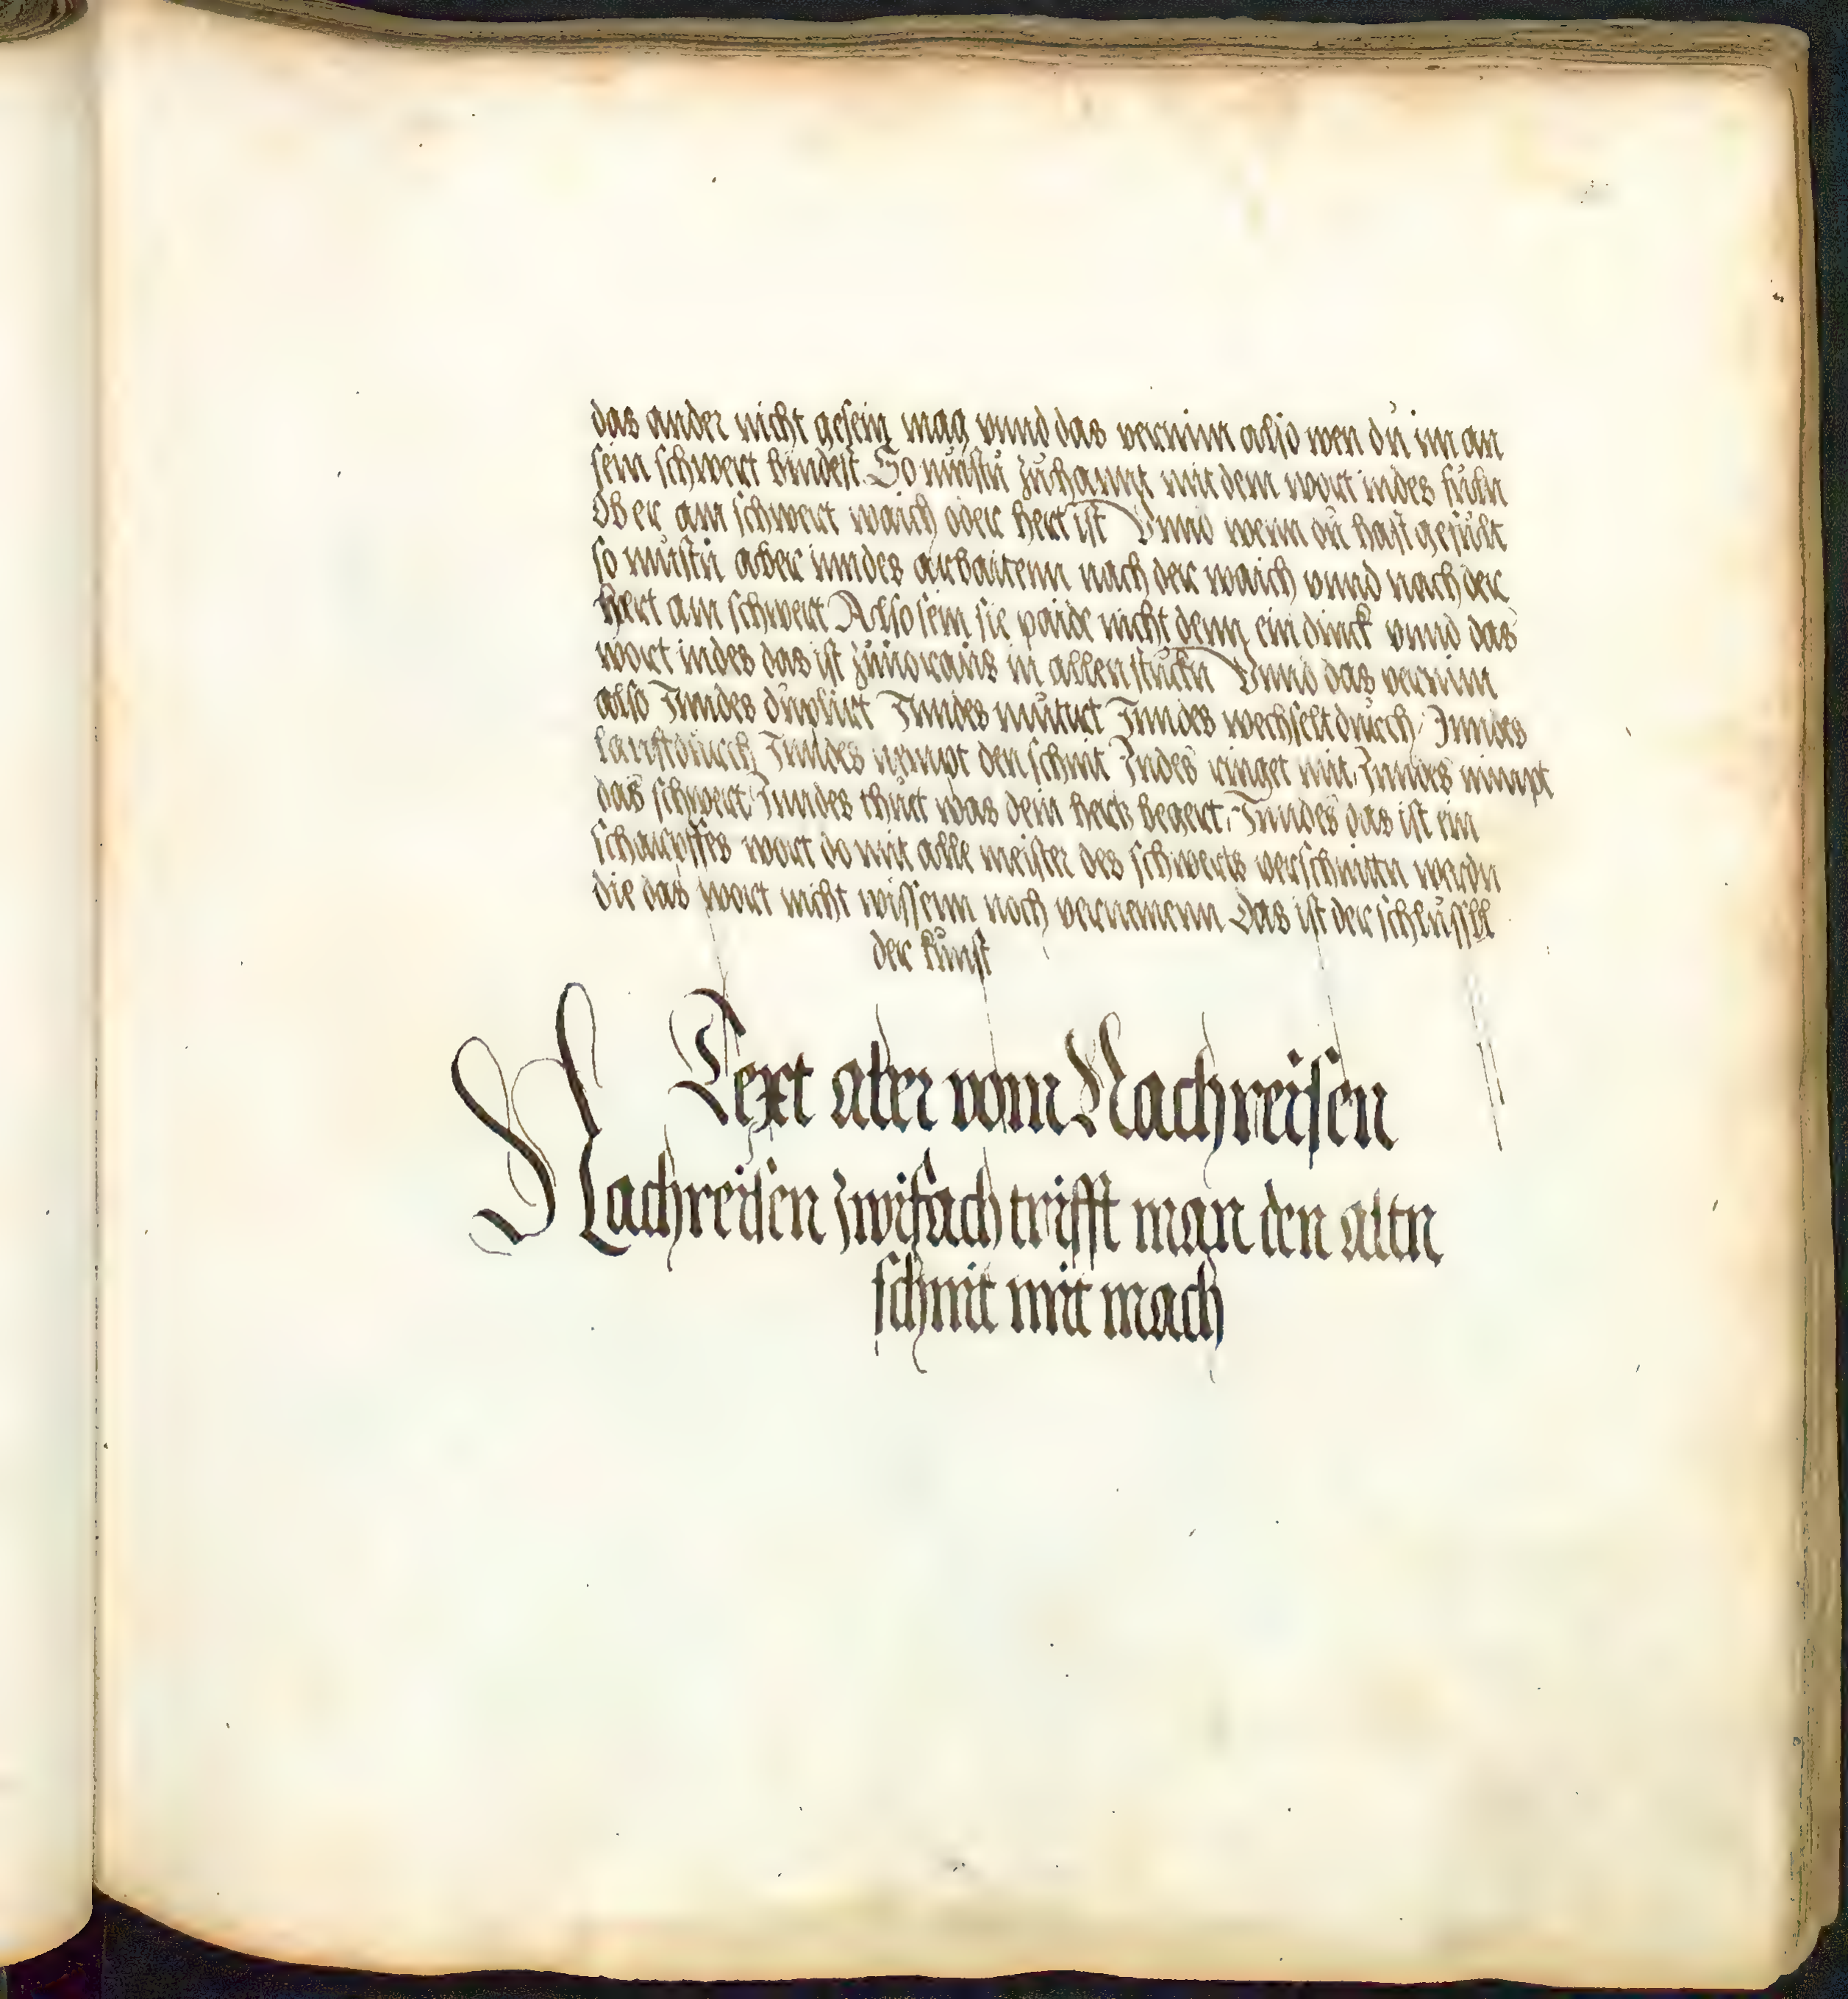 das ander nicht gesein mag vnnd das vernim also wen dů im an
sein schwert bindest So můstů zůhannt mit dem wort indes fůln
Ob er am schwert waich oder hert ist Vnnd wenn dů hast gefůlt
so můstů aber inndes arbaitenn nach der waich vnnd nach der
hert am schwert Also sein sie paide nicht denn ein dinck vnnd das
wort indes das ist zůuoraůs in allen stůckn Vnnd das vernim
also Inndes důplirt Inndes můtirt Inndes wechselt důrch Inndes
laufft důrch Inndes nempt den schnit Indes ringet mit Inndes nimpt
das schwert Inndes thůt was dein hertz begert Inndes das ist ein
scharpffes wort do mit alle meister des schwerts verschnittn werdn
die das wort nicht wissenn noch vernemenn Das ist der schlůssll
der kůnst
Text aber vom Nachreisen
Nachreisen zwifach trifft man den altn
schnit mit mach